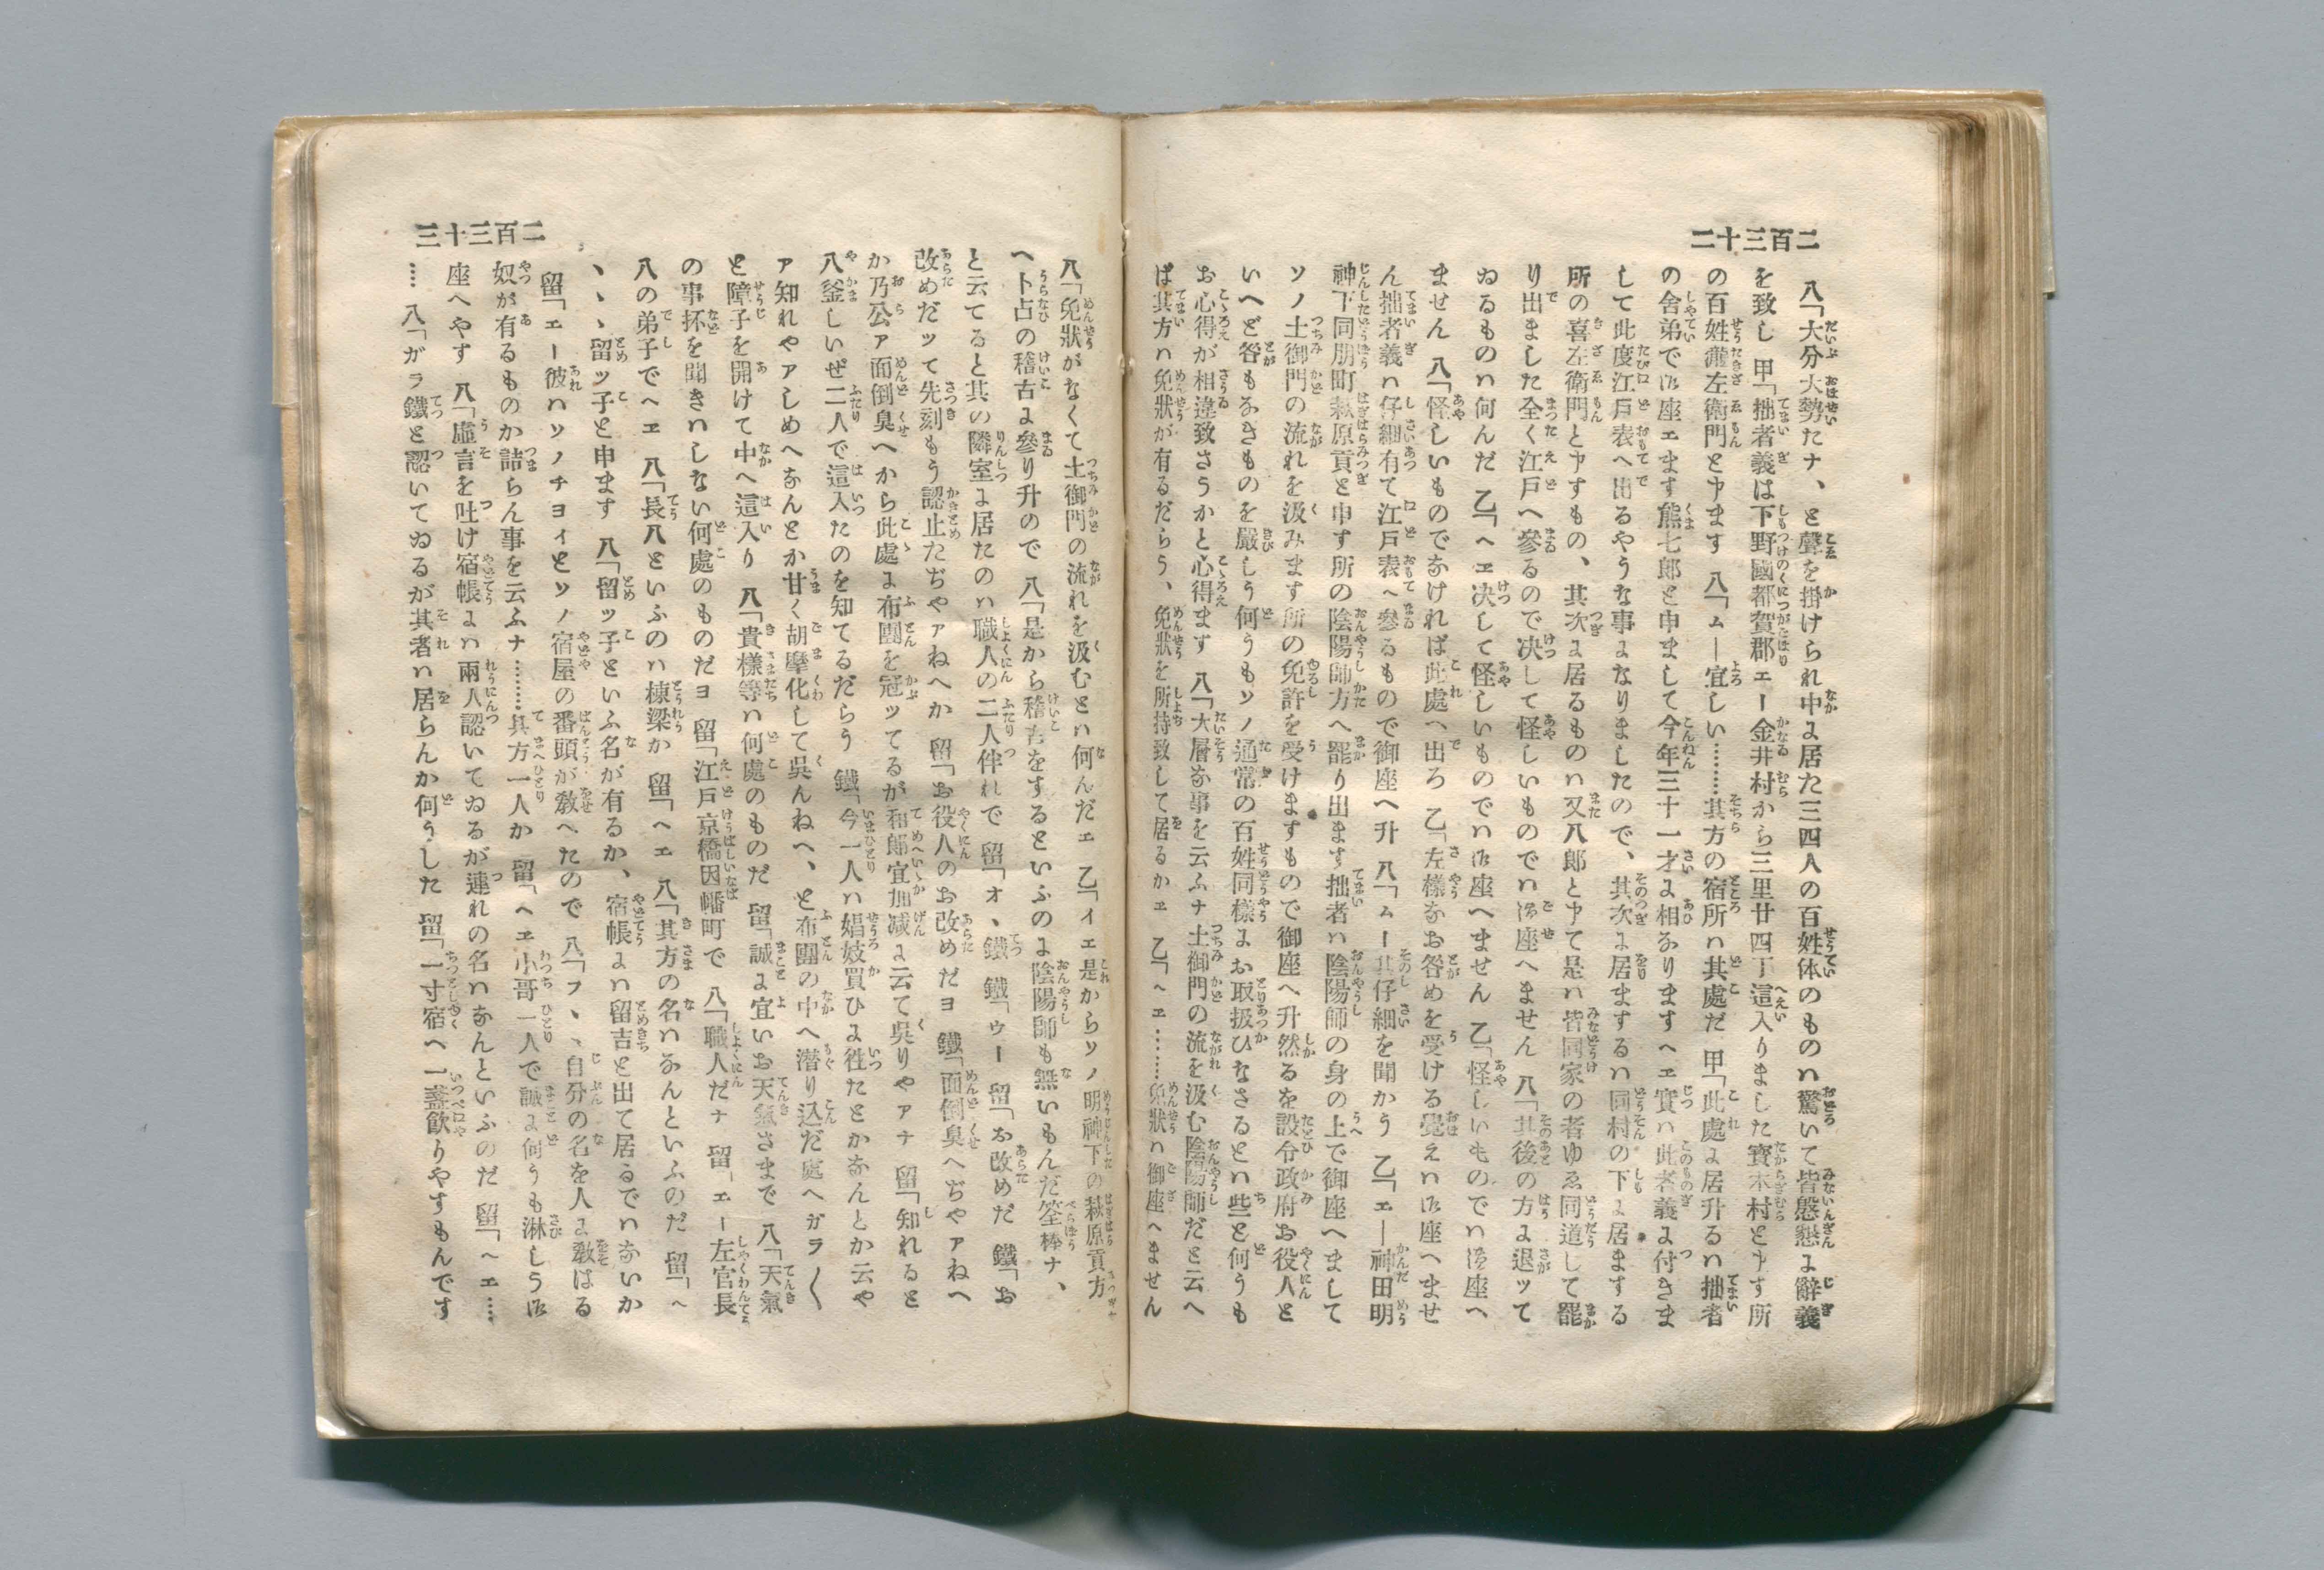 二百三十二
八「大分大勢たナ、と聲を掛けられ中に居た三四人の百姓体のものハ驚いて皆慇懃に辭義
を致し 甲「拙者義は下野國都賀郡エー金井村から三里廿四丁這入りました寳木村と申す所
の百姓瀧左衛門と申ます 八「ム―宜しい………其方の宿所ハ其處だ 甲「此處に居升るハ拙者
の舍弟で御座エます熊七郎と申まして今年三十一才に相なりますヘエ實ハ此者義に付きま
して此度江戸表へ出るやうな事になりましたので、其次に居まするハ同村の下に居まする
所の喜左衛門と申すもの、其次に居るものハ又八郎と申て是ハ皆同家の者ゆゑ同道して罷
り出ました全く江戸へ參るので决して怪しいものでハ御座へません 八「其後の方に退ッて
ゐるものハ何んだ 乙「ヘエ决して怪しいものでハ御座へません 乙「怪しいものでハ御座へ
ません 八「怪しいものでなければ此處へ出ろ 乙「左樣なお咎めを受ける覺えハ御座へませ
ん拙者義ハ仔細有て江戸表へ參るもので御座へ升 八「ムー其仔細を聞かう 乙「エ―神田明
神下同朋町萩原貢と申す所の陰陽師方へ罷り出ます拙者ハ陰陽師の身の上で御座へまして
ソノ土御門の流れを汲みます所の免許を受けますもので御座へ升然るを設令政府お役人と
いへど咎もなきものを嚴しう何うもソノ通常の百姓同樣にお取扱ひなさるとハ些と何うも
お心得が相違致さうかと心得ます 八「大層な事を云ふナ土御門の流を汲む陰陽師だと云へ
ば其方ハ免狀が有るだらう、免狀を所持致して居るかエ 乙「ヘエ……免狀ハ御座へません
二百三十三
八「免狀がなくて土御門の流れを汲むとハ何んだエ 乙「イエ是からソノ明神下の萩原貢方
へ卜占の稽古に參り升ので 八「是から稽古をするといふのに陰陽師も無いもんだ箆棒ナ、
と云てると其の隣室に居たのハ職人の二人伴れで 留「オヽ鐵 鐵「ウー 留「お改めだ 鐵「お
改めだッて先刻もう認止たぢやアねへか 留「お役人のお改めだヨ 鐵「面倒臭へぢやアねへ
か乃公ア面倒臭へから此處に布團を冠ッてるが和郎宜加减に云て呉りやアナ 留「知れると
八釜しいぜ二人で這入たのを知てるだらう 鐵「今一人ハ娼妓買ひに徃たとかなんとか云や
ア知れやアしめへなんとか甘く胡摩化して呉んねへ、と布團の中へ潜り込だ處へガラ〱
と障子を開けて中へ這入り 八「貴樣等ハ何處のものだ 留「誠に宜いお天氣さまで 八「天氣
の事抔を聞きハしない何處のものだヨ 留「江戸京橋因幡町で 八「職人だナ 留「エー左官長
八の弟子でヘエ 八「長八といふのハ棟梁か 留「ヘエ 八「其方の名ハなんといふのだ 留「ヘ
ヽヽ留ッ子と申ます 八「留ッ子といふ名が有るか、宿帳にハ留吉と出て居るでハないか
留「エー彼ハソノチヨイとソノ宿屋の番頭が敎へたので 八「フヽヽ自分の名を人に敎はる
奴が有るものか詰らん事を云ふナ………其方一人か 留「ヘエ小哥一人で誠に何うも淋しう御
座へやす 八「虚言を吐け宿帳にハ兩人認いてゐるが連れの名ハなんといふのだ 留「ヘエ…
… 八「ガラ鐵と認いてゐるが其者ハ居らんか何うした 留「一寸宿へ一盞飮りやすもんです